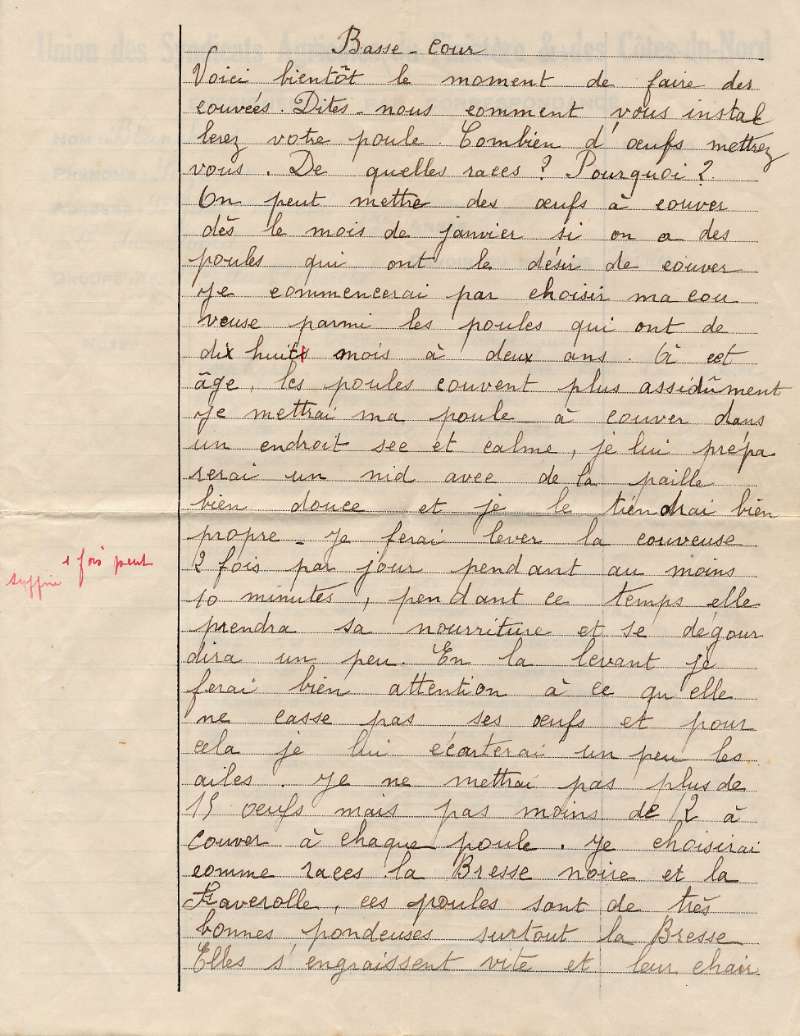 Basse-cour
Voici bientôt le moment de faire des
couvées. Dites-nous comment vous instal
lerez votre poule. Combien d'œufs mettrez
vous. De quelles races ? Pourquoi ?
On peut mettre des œufs à couver
dès le mois de janvier si on a des
poules qui ont le désir de couver
Je commencerai par choisir ma cou
veuse parmi les poules qui ont de
dix huit mois à deux ans. A cet
âge, les poules couvent plus assidûment
Je mettrai ma poule à couver dans
un endroit sec et calme, je lui prépa
rerai un nid avec de la paille
bien douce et je le tiendrai bien
propre - Je ferai lever la couveuse
2 fois par jour pendant au moins
10 minutes, pendant ce temps elle
prendra sa nourriture et se dégour
dira un peu. En la levant je
ferai bien attention à ce qu'elle
ne casse pas ses œufs et pour
cela je lui écarterai un peu les
ailes. Je ne mettrai pas plus de
15 œufs mais pas moins de 12 à
couver à chaque poule. Je choisirai
comme races la Bresse noire et la
Faverolle, ces poules sont de très
bonnes pondeuses surtout la Bresse
Elles s'engraissent vite et leur chair
1 fois peut
suffire
Union des Syndicats Côtes-du-Nord